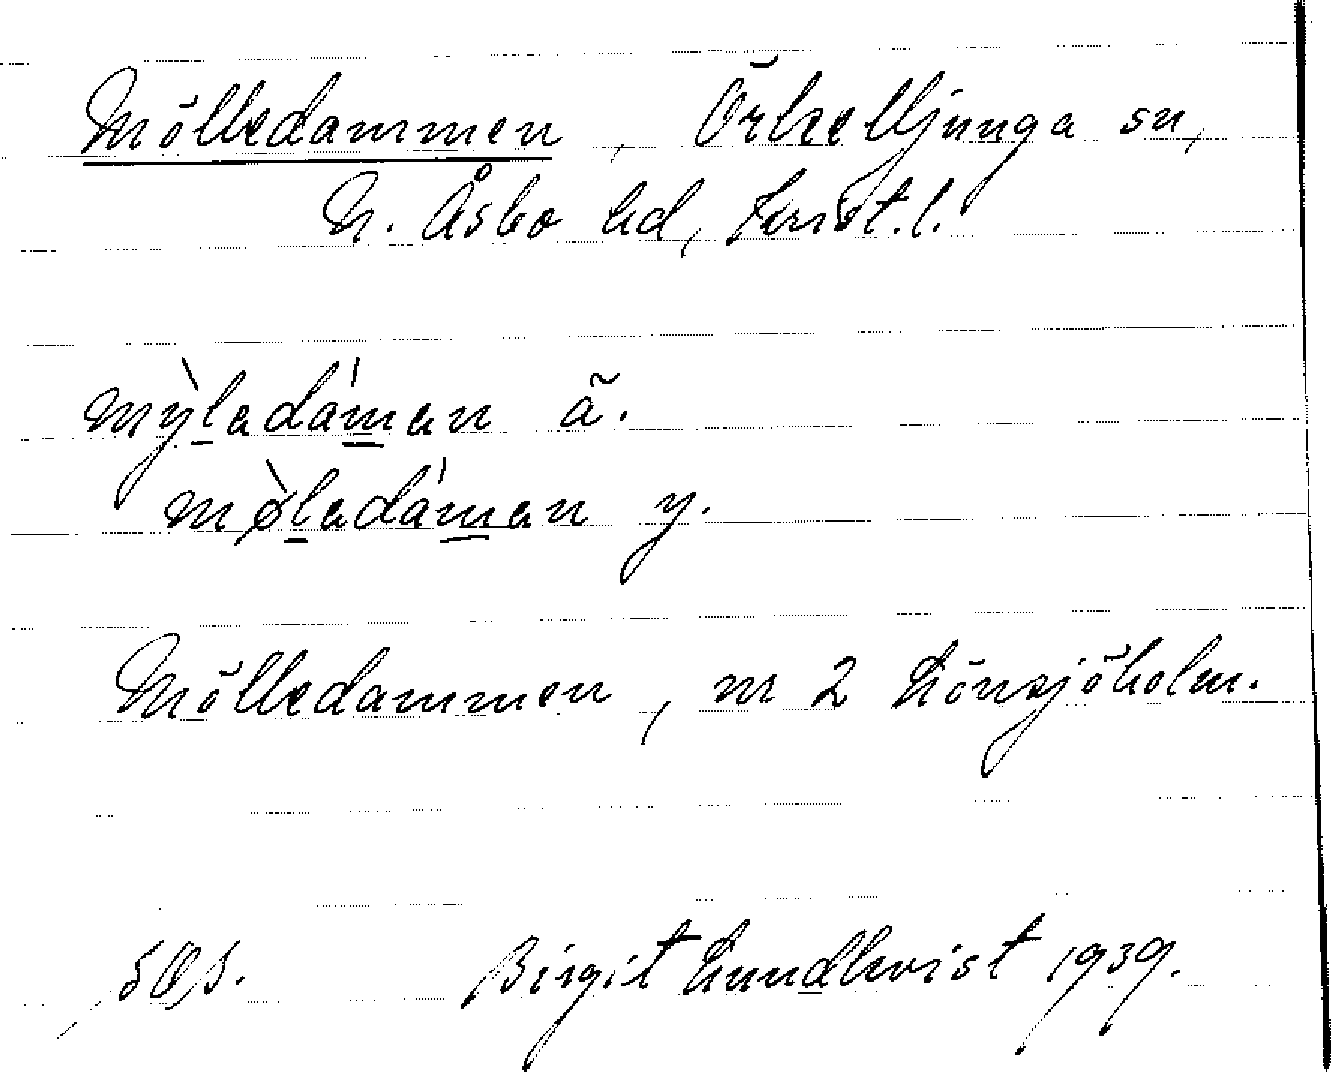 Mölledammen, Örkelljunga sn,
N. Åsbo hd, Krist. l.
mỳladámen ä.
mø̀ladámen y.
Mölledammen, nr 2 Lönsjöholm.
Birgit Lundkvist 1939.